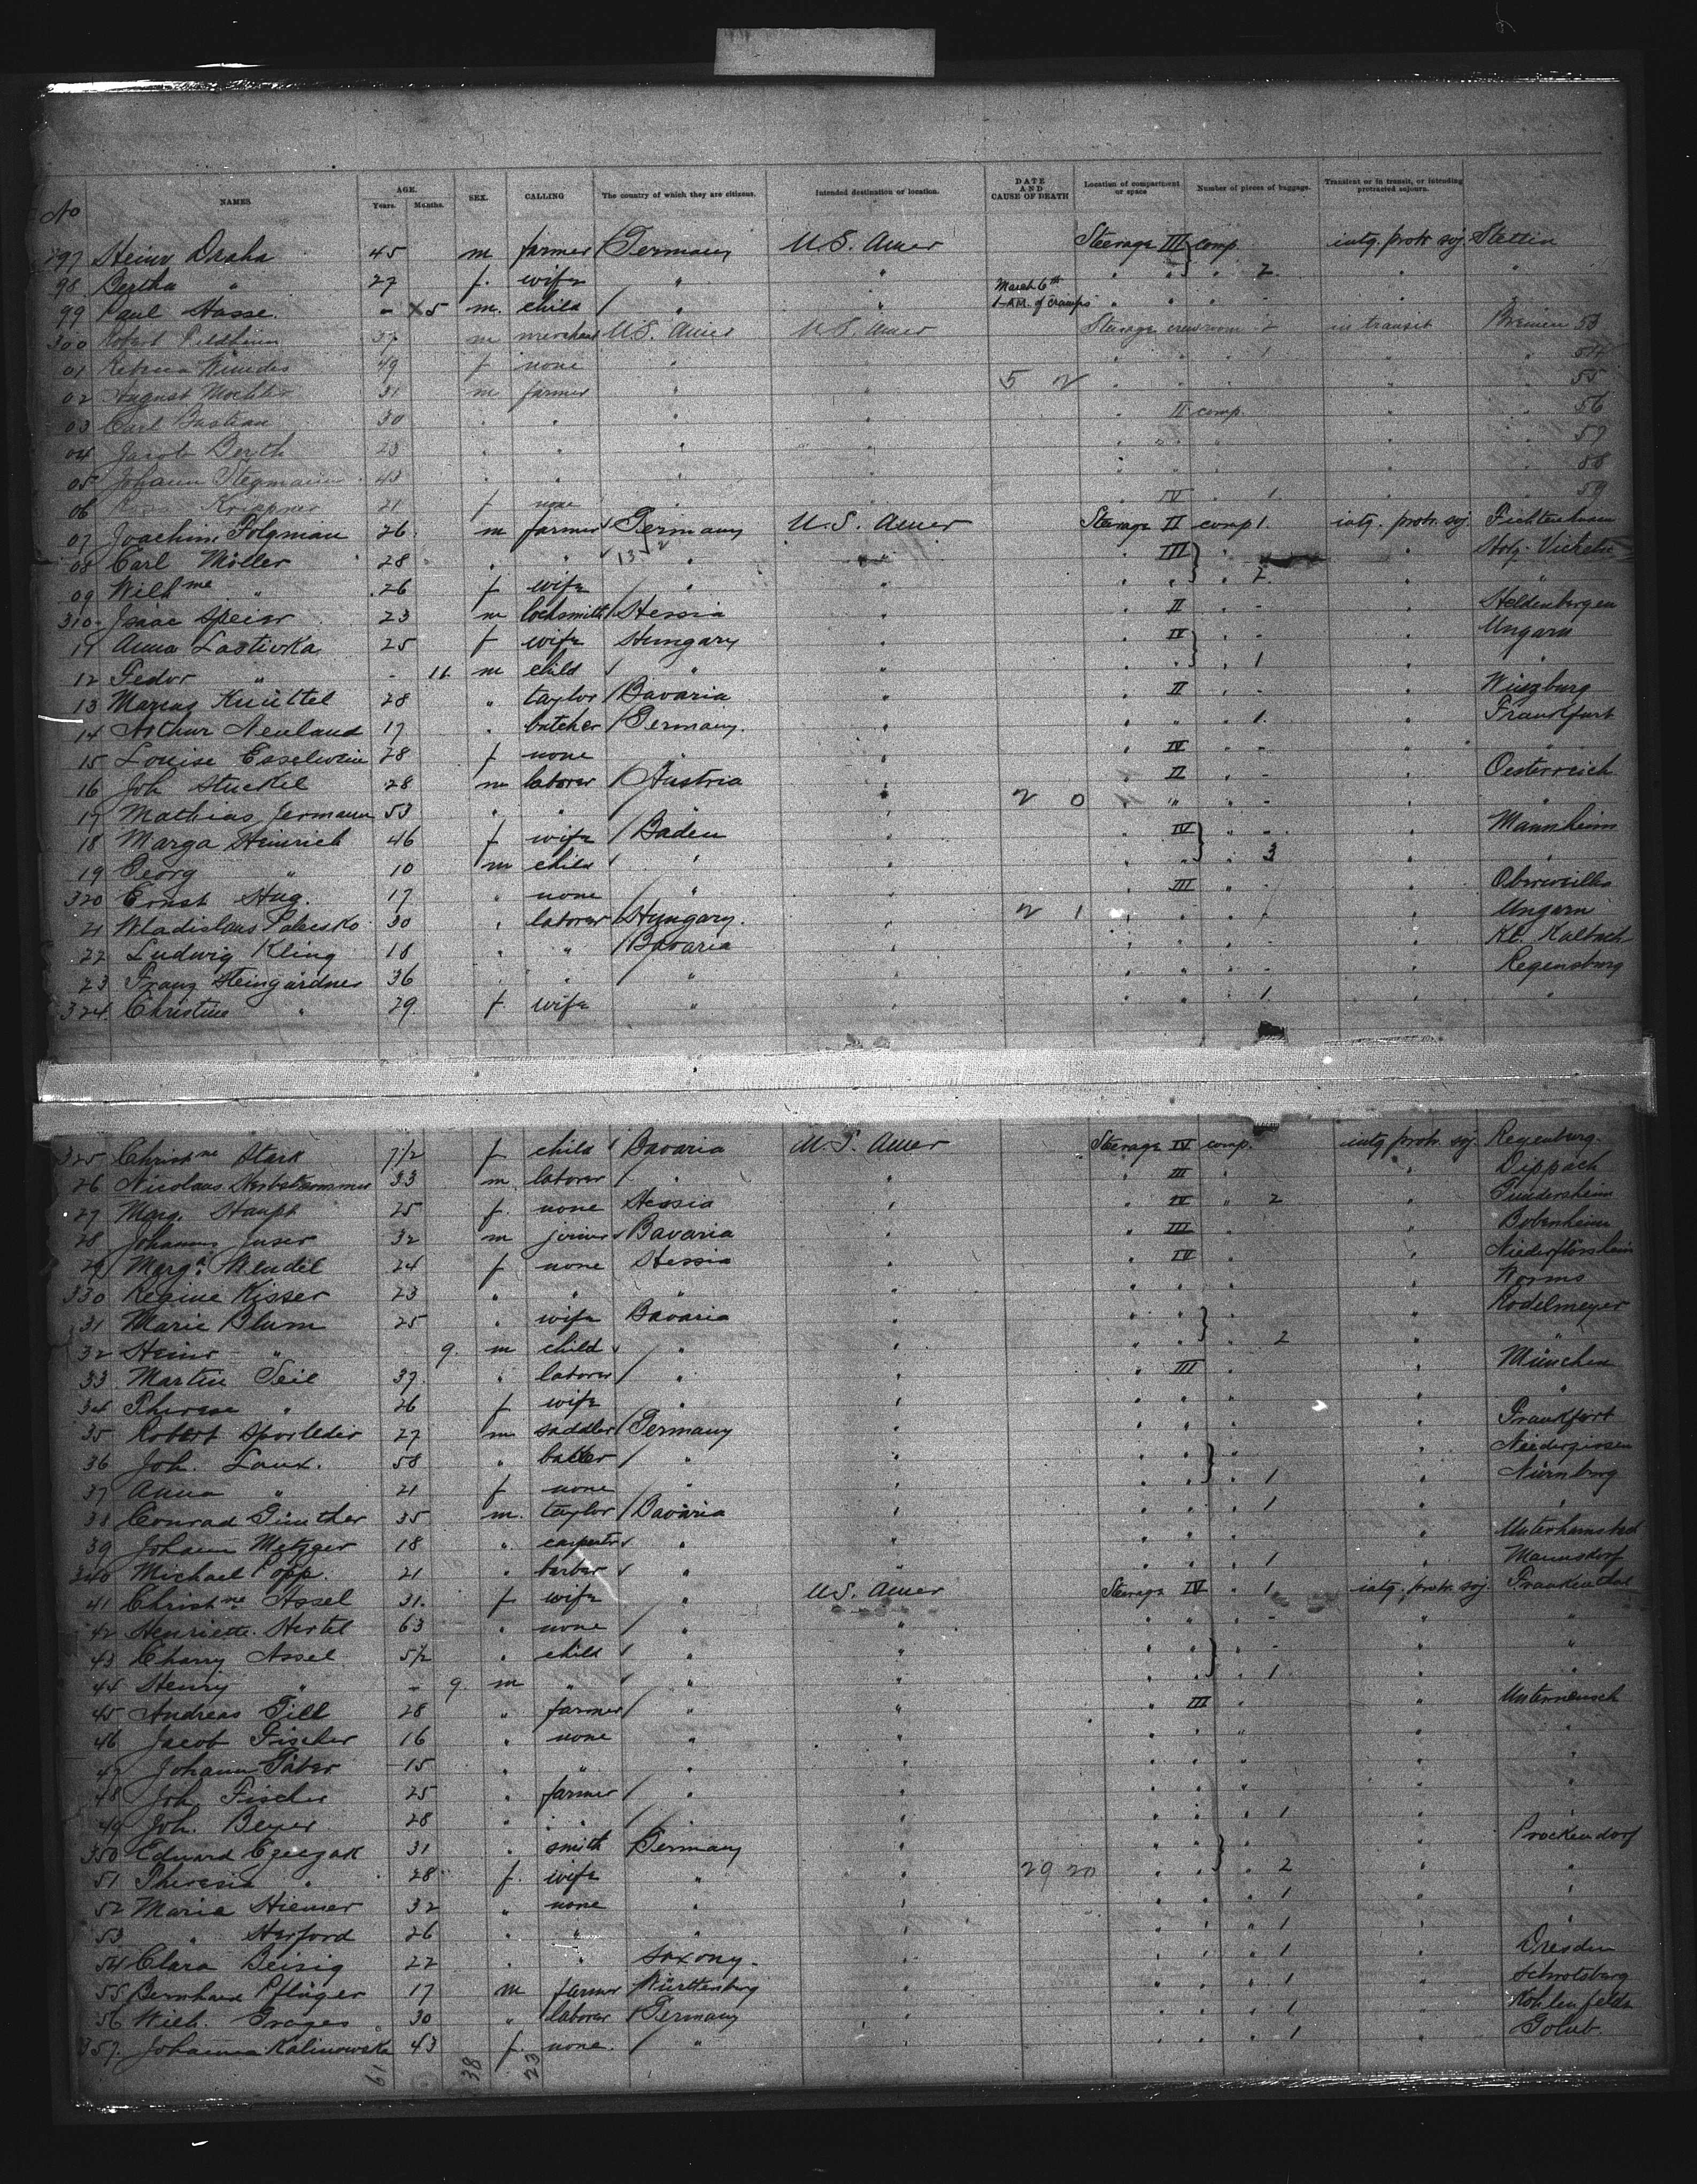 No NAMES AGE. Years. Months. SEX. CALLING The country of which they are citizens. Intended destination or location. DATE AND CAUSE OF DEATH Location of compartment or space Number of pieces of baggage. Transient or in transit, or intending protracted sojourn.
297 Heinr Draha 45 m farmer Germany U.S. Amer Steerage III comp. intg. protr soj Stettin
98 Bertha " 27 f. wife " " " " " 2 " "
99 Paul Hasse - 5 m. child " " March 6th 1 AM. of cramps " " " - " "
300 Robert 37 m merchant U.S. Amer U.S. Amer Steerage room 2 in transit Bremen 53
01 49 f none " " " " " 1 " " 54
02 August 31 m farmer " " 5 2 " " " " " 55
03 Carl Bastian 30 " " " " " II comp. " " 56
04 Jacob Berth 23 " " " " " " " " " 57
05 Johann Stegmann 43 " " " " " " " " " 58
06 Krippner 21 f none " " " IV " 1 " " 59
07 Joachim Folgman 26 m farmer Germany U.S. Amer Steerage II comp 1. intg. protr. soj
08 Carl Möller 28 " " 13 2 " " " III " "
09 Wilhme " 26 f wife " " " " " 2 " "
310 Isaac Speier 23 m locksmith Hessia " " II " - " Heldenbergen
11 Anna Lastivka 25 f wife Hungary " " IV " - " Ungarn
12 Fedor " - 11 m child " " " " " 1 " "
13 Knüttel 28 " taylor Bavaria " " II " - " Würzburg
14 Arthur Neuland 17 " butcher Germany. " " " " 1. " Frankfurt
15 Louise Esselwein 28 f none " " " IV " - " "
16 Joh Stuckel 28 m laborer Austria " " II " - " Oesterreich
17 Mathias Jermann 53 " " " " 2 0 " " " - " "
18 Marga Heinrich 46 f wife Baden " " IV " - " Mannheim
19 Georg " 10 m child " " " " " 3 " "
320 Ernst Hug. 17 " none " " " III " - "
21 Wladislaus 30 " laborer Hungary. " 2 1 " " " " Ungarn
22 Ludwig Kling 18 " " Bavaria " " " " - " Kl. Kalbach
23 Franz Steingärdner 36 " " " " " " " - " Regensburg
324. Christine " 29. f wife " " " " " 1. " "
325 Christne Stark 7 1/2 f child Bavaria U.S. Amer Steerage IV comp. intg protr. soj. Regenburg.
26 Nicolaus 33 m. laborer " " " III " " Dippach
27 Marg. Haupt 25 f. none Hessia " " IV " 2 "
28 Johannes Juser 32 m joiner Bavaria " " III " " Bobenheim
29 Marga. Wendel 24 f none Hessia " " IV " " Niederflörsheim
330 Regine Kisser 23 " " " " " " " " Worms
31 Marie Blum 25 " wife Bavaria " " " " "
32 Heinr " - 9. m child " " " " " 2 " "
33 Martin Seil 37. " laborer " " " III " " München
34 Therese " 26 f wife " " " " " " "
35 Robert Sporleder 27 m saddler Germany " " " " " Frankfort
36 Joh. Laux. 58 " baker " " " " " "
37 Anna " 21 f none " " " " " 1 " Nürnberg
38 Conrad Günther 35 m. taylor Bavaria " " " " 1 " "
39 Johann Metzger 18 " carpenter " " " " " "
340 Michael Popp. 21 " barber " " " " " 1 "
41 Christne. Assel 31. f wife " U.S. Amer Steerage IV " 1 intg. protr. soj. Frankenthal
42 Henriette Hertel 63 " none " " " " " - " "
43 Charry Assel 5 1/2 " child " " " " " - " "
44 Henry " - 9. m " " " " " " 1 " "
45 Andreas Till 28 " farmer " " " III " "
46 Jacob Fischer 16 " none " " " " " " "
47 Johann Täber 15 " " " " " " " " "
48 Joh. Fischer 25 " farmer " " " " " " "
49 Joh. Beyer. 28 " " " " " " " 1 " "
350 Eduard Czeczak 31 " smith Germany " " " " " Prockendorf
51 Theresia " 28 f. wife " " 29 20 " " " 2 " "
52 Maria Hiemer 32 " none " " " " " 1 " "
53 " Herford 26 " " " " " " " 1 " "
54 Clara Beisig 22 " " Saxony. " " " " 1 " Dresden
55 Bernhard Pflüger 17 m farmer Württenberg " " " " 1 "
56 Wilh. Grages 30 " laborer Germany " " " " 1 "
357. Johanna Kalinowska 43 f. none. " " " " " 1 " Golub.
61 38 23